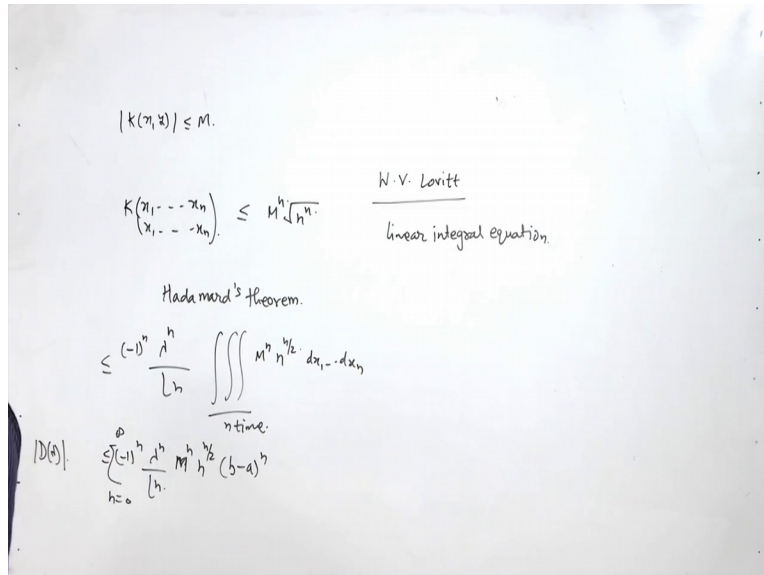 |K(x,y)| ≤ M.
K(x₁ - - - xₙ
x₁ - - - xₙ). ≤ Mⁿ √nⁿ.
W.V. Lovitt
linear integral equation.
Hadamard's theorem.
≤ (-1)ⁿ λⁿ/⌊n ∫∫∫ Mⁿ n^(n/2) dx₁ - - dxₙ
n time.
|D(λ)|. ≤ ∑_(n=0)^∞ (-1)ⁿ λⁿ/⌊n. Mⁿ n^(n/2) (b-a)ⁿ